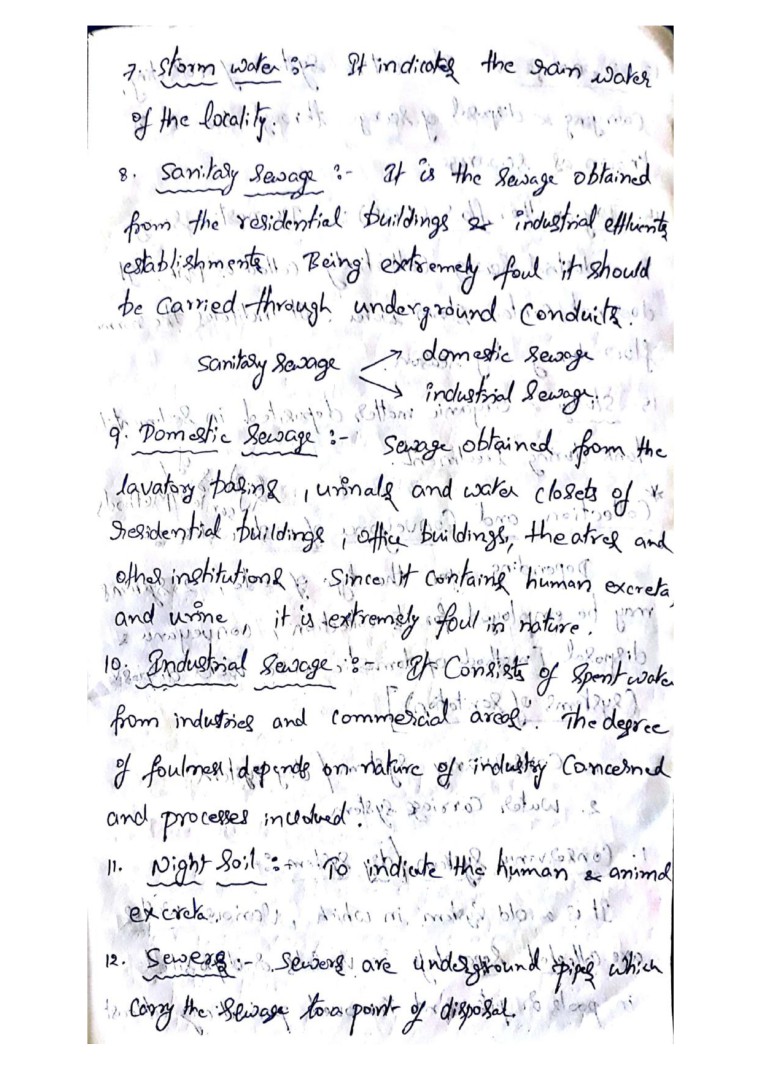 7. Storm water :- It indicates the rain water
of the locality.
8. Sanitary Sewage :- It is the Sewage obtained
from the residential buildings & industrial effluents
establishments. Being extremely foul it should
be Carried through underground Conduits.
Sanitary Sewage
domestic Sewage
industrial Sewage.
9. Domestic Sewage :- Sewage obtained from the
lavatory basins, urinals and water closets of
residential buildings, office buildings, theatres and
other institutions. Since it Contains human excreta
and urine, it is extremely foul in nature.
10. Industrial Sewage :- It Consists of Spent water
from industries and commercial areas. The degree
of foulness depends on nature of industry Concerned
and processes involved.
11. Night Soil :- To indicate the human & animal
excreta.
12. Sewers :- Sewers are underground pipes which
Carry the Sewage to a point of disposal.